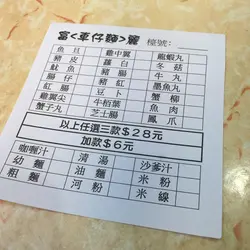 富<車仔麵>麗 檯號:
魚旦 雞中翼 龍蝦丸
豬皮 蘿白 冬菇
魷魚 豬腸 牛丸
腸仔 紅腸 墨魚丸
豬紅 豆卜 蟹柳
雞翼尖 牛栢葉 魚肉
蟹子丸 芝士腸 鳳爪
以上任選三款$28元
加款$6元
咖喱汁 清湯 沙爹汁
幼麵 油麵 米粉
粗麵 河粉 米線